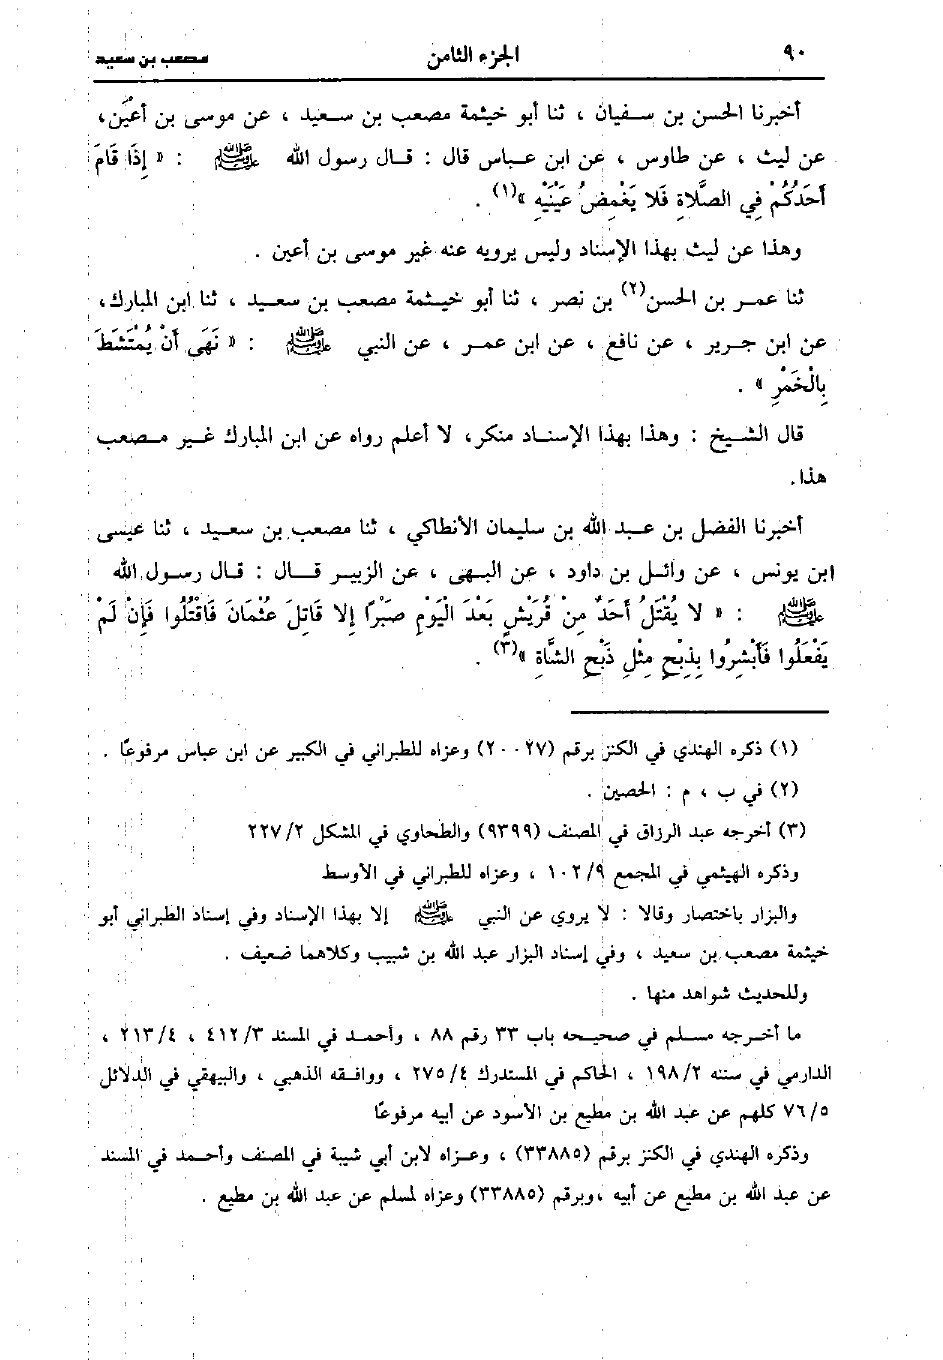 ٩٠ الجزء الثامن مصعب بن سعيد
أخبرنا الحسن بن سفيان ، ثنا أبو خيثمة مصعب بن سعيد ، عن موسى بن أعيَن،
عن ليث ، عن طاوس ، عن ابن عباس قال : قال رسول الله ﷺ : « إِذَا قَامَ
أَحَدُكُمْ فِي الصَّلَاةِ فَلَا يَغْمِضُ عَيْنَيْهِ »(١) .
وهذا عن ليث بهذا الإسناد وليس يرويه عنه غير موسى بن أعين .
ثنا عمر بن الحسن(٢) بن نصر ، ثنا أبو خيثمة مصعب بن سعيد ، ثنا ابن المبارك،
عن ابن جرير ، عن نافع ، عن ابن عمر ، عن النبي ﷺ : « نَهَى أَنْ يُمْتَشَطَ
بِالْخَمْرِ » .
قال الشيخ : وهذا بهذا الإسناد منكر، لا أعلم رواه عن ابن المبارك غير مصعب
هذا.
أخبرنا الفضل بن عبد الله بن سليمان الأنطاكي ، ثنا مصعب بن سعيد ، ثنا عيسى
ابن يونس ، عن وائل بن داود ، عن البهى ، عن الزبير قال : قال رسول الله
ﷺ : « لا يُقْتَلُ أَحَدٌ مِنْ قُرَيْشٍ بَعْدَ الْيَوْمِ صَبْرًا إِلا قَاتِلَ عثْمَانَ فَاقْتُلُوا فَإِنْ لَمْ
يَفْعَلُوا فَأَبْشِرُوا بِذِبْحٍ مِثْلِ ذَبْحِ الشَّاةِ »(٣) .
(١) ذكره الهندي في الكنز برقم (٢٠٠٢٧) وعزاه للطبراني في الكبير عن ابن عباس مرفوعًا .
(٢) في ب ، م : الحصين .
(٣) أخرجه عبد الرزاق في المصنف (٩٣٩٩) والطحاوي في المشكل ٢٢٧/٢
وذكره الهيثمي في المجمع ١٠٢/٩ ، وعزاه للطبراني في الأوسط
والبزار باختصار وقالا : لا يروي عن النبي ﷺ إلا بهذا الإسناد وفي إسناد الطبراني أبو
خيثمة مصعب بن سعيد ، وفي إسناد البزار عبد الله بن شبيب وكلاهما ضعيف .
وللحديث شواهد منها .
ما أخرجه مسلم في صحيحه باب ٣٣ رقم ٨٨ ، وأحمد في المسند ٤١٢/٣ ، ٢١٣/٤ ،
الدارمي في سننه ١٩٨/٢ ، الحاكم في المستدرك ٢٧٥/٤ ، ووافقه الذهبي ، والبيهقي في الدلائل
٧٦/٥ كلهم عن عبد الله بن مطيع بن الأسود عن أبيه مرفوعًا
وذكره الهندي في الكنز برقم (٣٣٨٨٥) ، وعزاه لابن أبي شيبة في المصنف وأحمد في المسند
عن عبد الله بن مطيع عن أبيه ،وبرقم (٣٣٨٨٥) وعزاه لمسلم عن عبد الله بن مطيع .